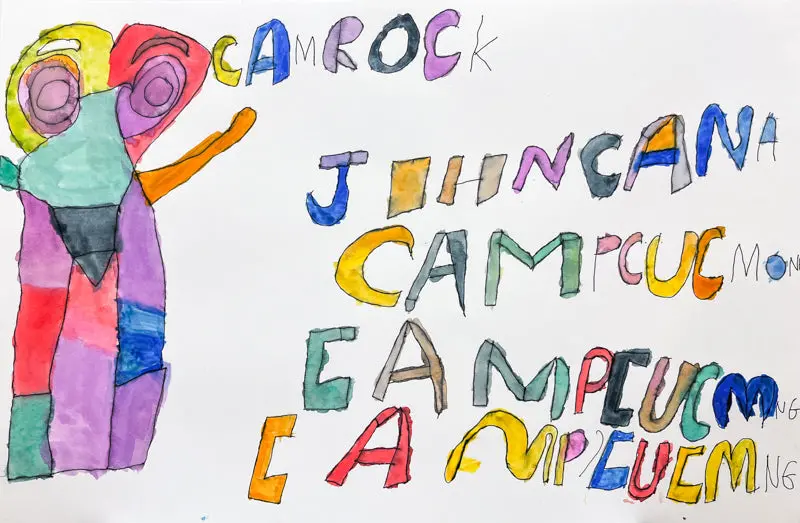 CAMROCK
JOHNCANA
CAMPCUCMONG
CAMPCUCMNG
CAMPCUCMNG